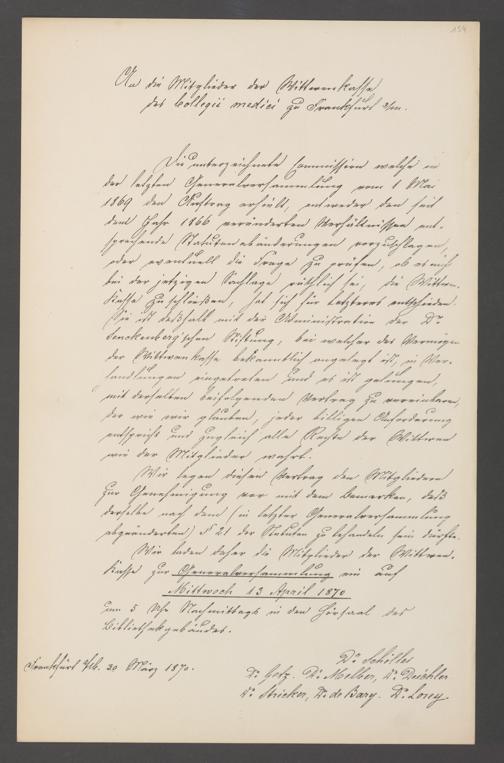 154
An die Mitglieder der Wittwenkasse
des Collegii medici zu Frankfurt a/m.
Die unterzeichnete Commission welche in
der letzten Generalversammlung vom 1 Mai
1869 den Auftrag erhielt, entweder den seit
dem Jahr 1866 veränderten Verhältnissen ent-
sprechende Statutenabänderungen vorzuschlagen,
oder eventuell die Frage zu prüfen, ob es nicht
bei der jetzigen Sachlage räthlich sei, die Wittwen-
kasse zu schließen, hat sich für Letzteres entschieden.
Sie ist deßhalb mit der Administration der Dr
Senckenberg'schen Stiftung, bei welcher das Vermögen
der Wittwenkasse bekanntlich angelegt ist, in Ver-
handlungen eingetreten und es ist gelungen,
mit derselben beifolgenden Vertrag zu vereinbaren,
der wie wir glauben, jeder billigen Anforderung
entspricht und zugleich alle Rechte der Wittwen
wie der Mitglieder wahrt.
Wir legen diesen Vertrag den Mitgliedern
zur Genehmigung vor mit dem Bemerken, daß
derselbe nach dem (in letzter Generalversammlung
abgeänderten) § 21 der Statuten zu behandeln sein dürfte.
Wir laden daher die Mitglieder der Wittwen-
kasse zur Generalversammlung ein auf
Mittwoch 13 April 1870
um 5 Uhr Nachmittags in den Hörsaal des
Bibliothekgebäudes.
Frankfurt a/m. 20 März 1870.
Dr Schölles
Dr. Getz. Dr. Melber, Dr. Deichler
Dr. Stricker, Dr. de Bary. Dr. Lorey.